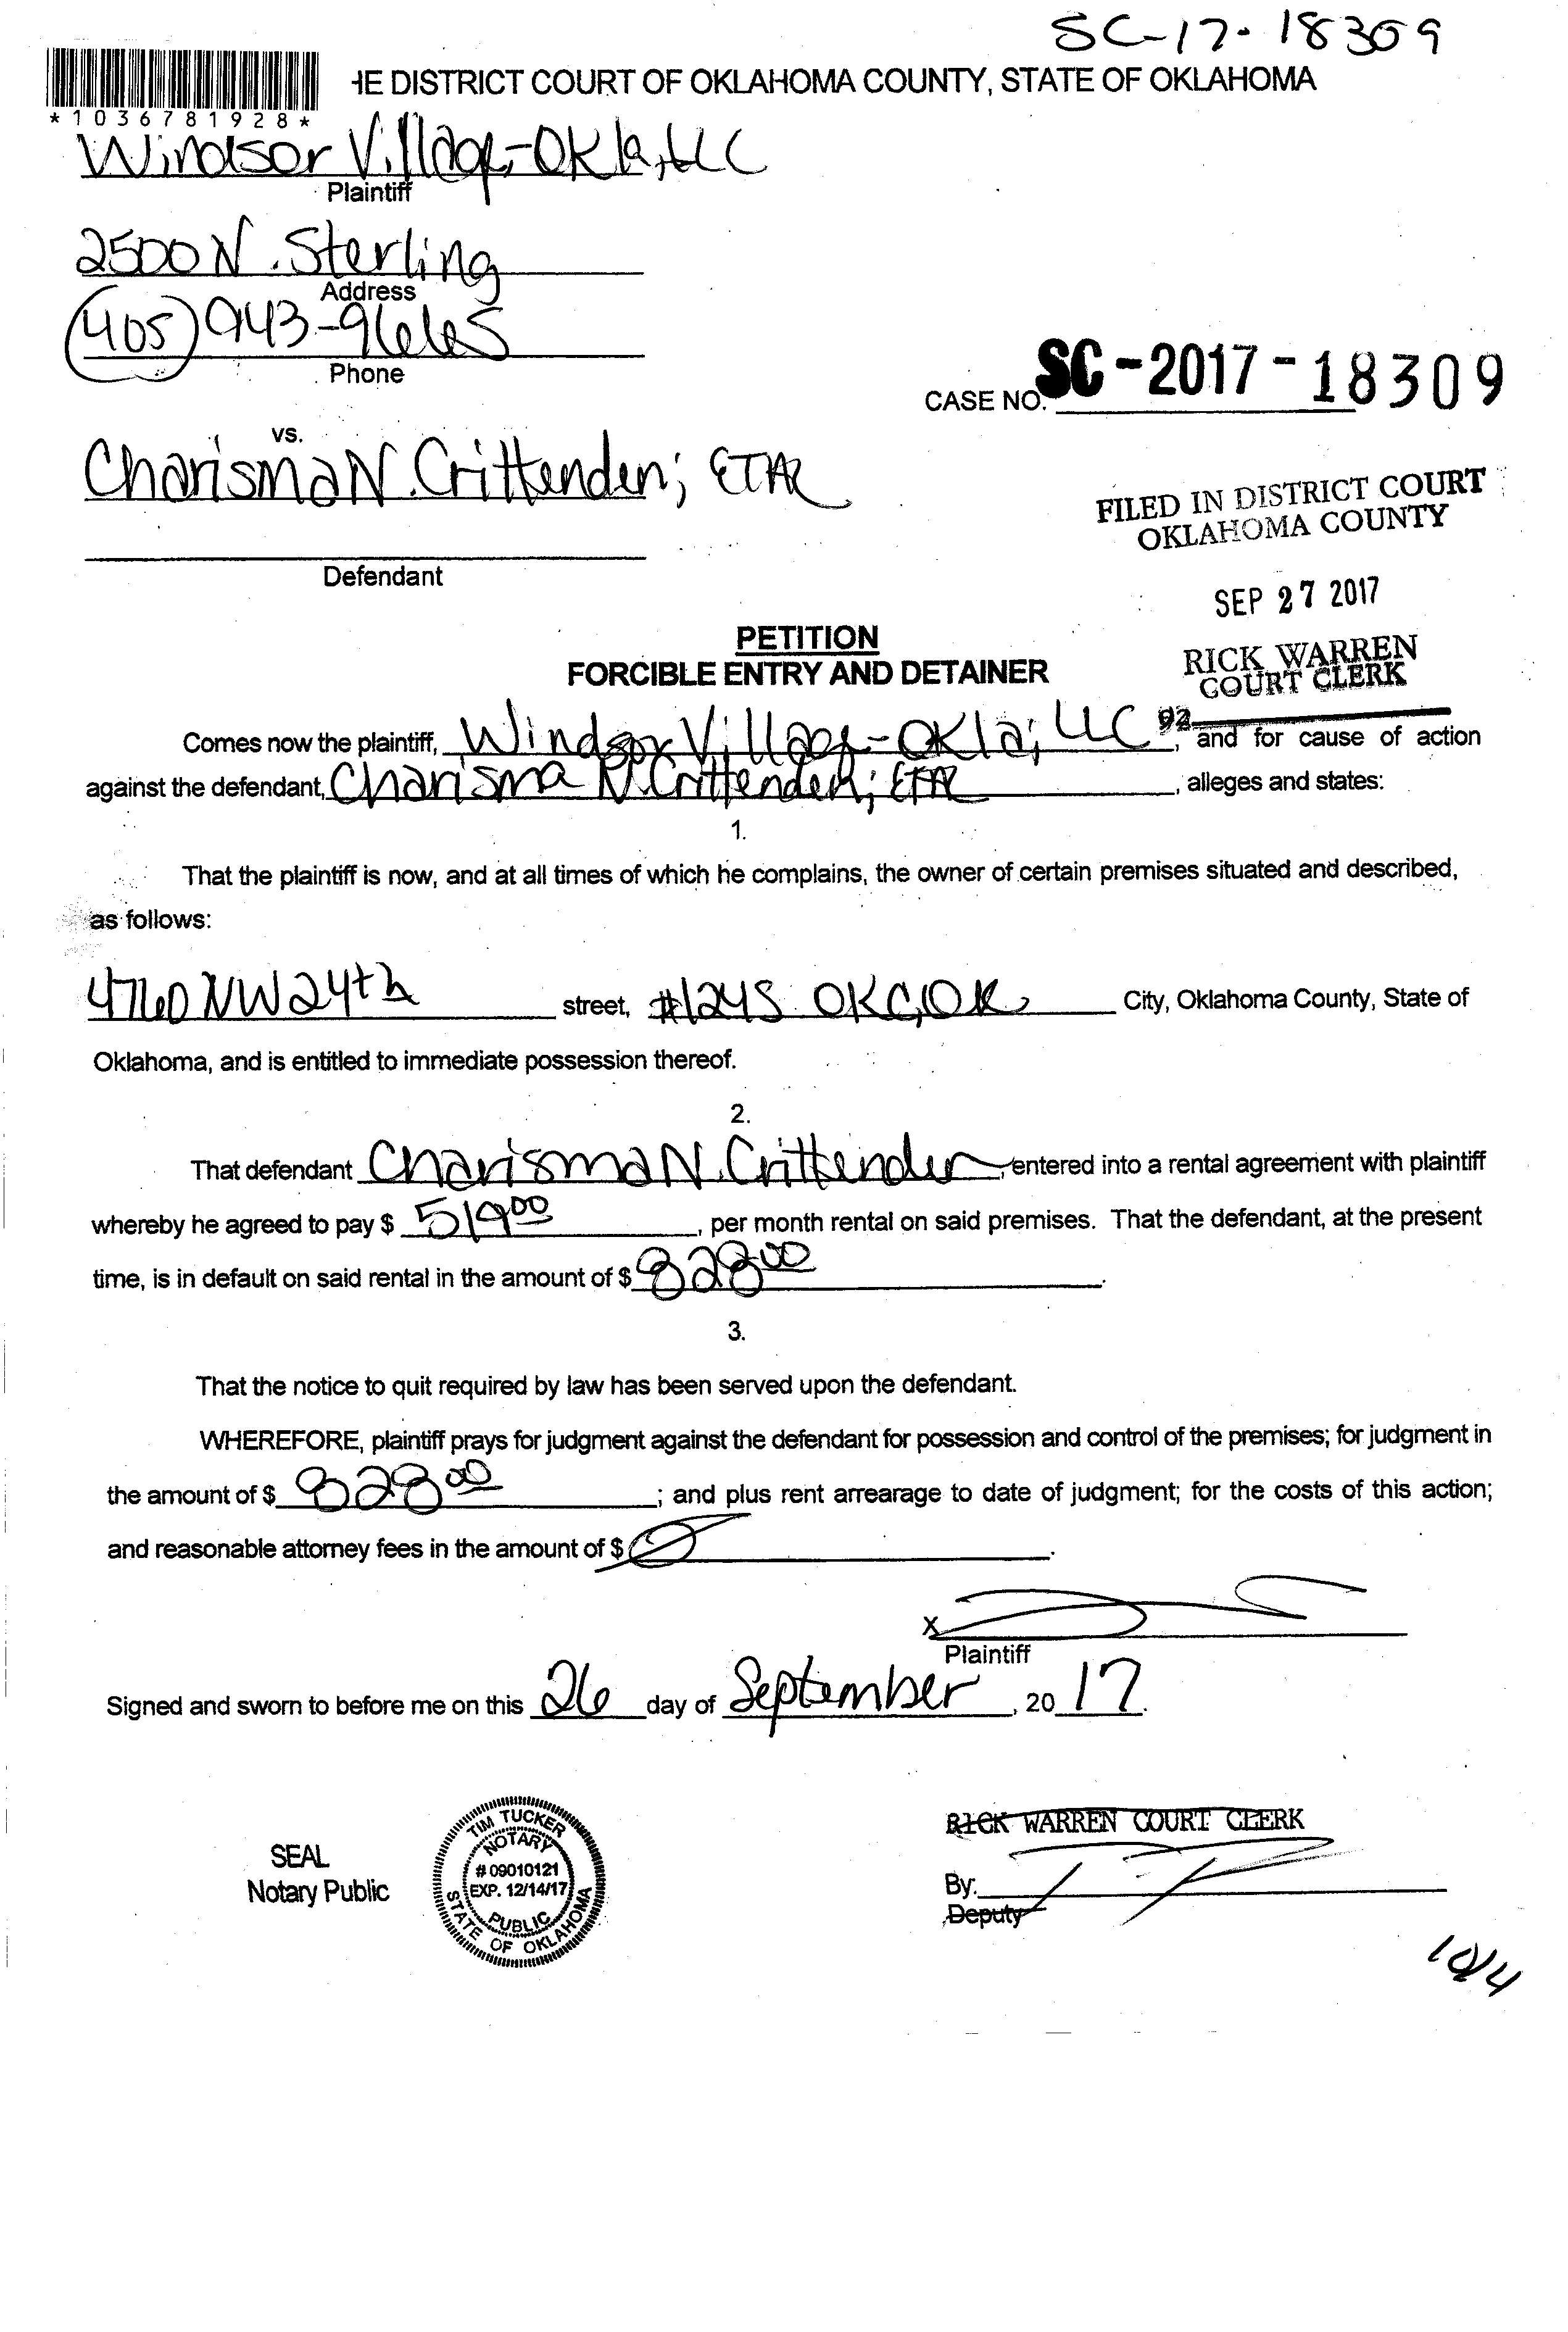 SC-17-18309
HE DISTRICT COURT OF OKLAHOMA COUNTY, STATE OF OKLAHOMA
*1036781928*
Windsor Village-Okla, LLC
Plaintiff
2500 N. Sterling
Address
(405) 943-9665
Phone
CASE NO. SC-2017-18309
vs.
Charisma N. Crittenden; ETAL
FILED IN DISTRICT COURT
OKLAHOMA COUNTY
Defendant
SEP 27 2017
PETITION
RICK WARREN
FORCIBLE ENTRY AND DETAINER
COURT CLERK
92
Comes now the plaintiff, Windsor Village-Okla, LLC, and for cause of action
against the defendant, Charisma N. Crittenden; ETAL, alleges and states:
1.
That the plaintiff is now, and at all times of which he complains, the owner of certain premises situated and described,
as follows:
4760 NW 24th street, #124S OKC, OK City, Oklahoma County, State of
Oklahoma, and is entitled to immediate possession thereof.
2.
That defendant Charisma N. Crittenden, entered into a rental agreement with plaintiff
whereby he agreed to pay $ 519.00, per month rental on said premises. That the defendant, at the present
time, is in default on said rental in the amount of $ 828.00.
3.
That the notice to quit required by law has been served upon the defendant.
WHEREFORE, plaintiff prays for judgment against the defendant for possession and control of the premises; for judgment in
the amount of $ 828.00; and plus rent arrearage to date of judgment; for the costs of this action;
and reasonable attorney fees in the amount of $ 0.
X
Plaintiff
Signed and sworn to before me on this 26 day of September, 2017.
RICK WARREN COURT CLERK
SEAL
Notary Public
TIM TUCKER
NOTARY
# 09010121
EXP. 12/14/17
PUBLIC
STATE OF OKLAHOMA
By:
Deputy
10/4